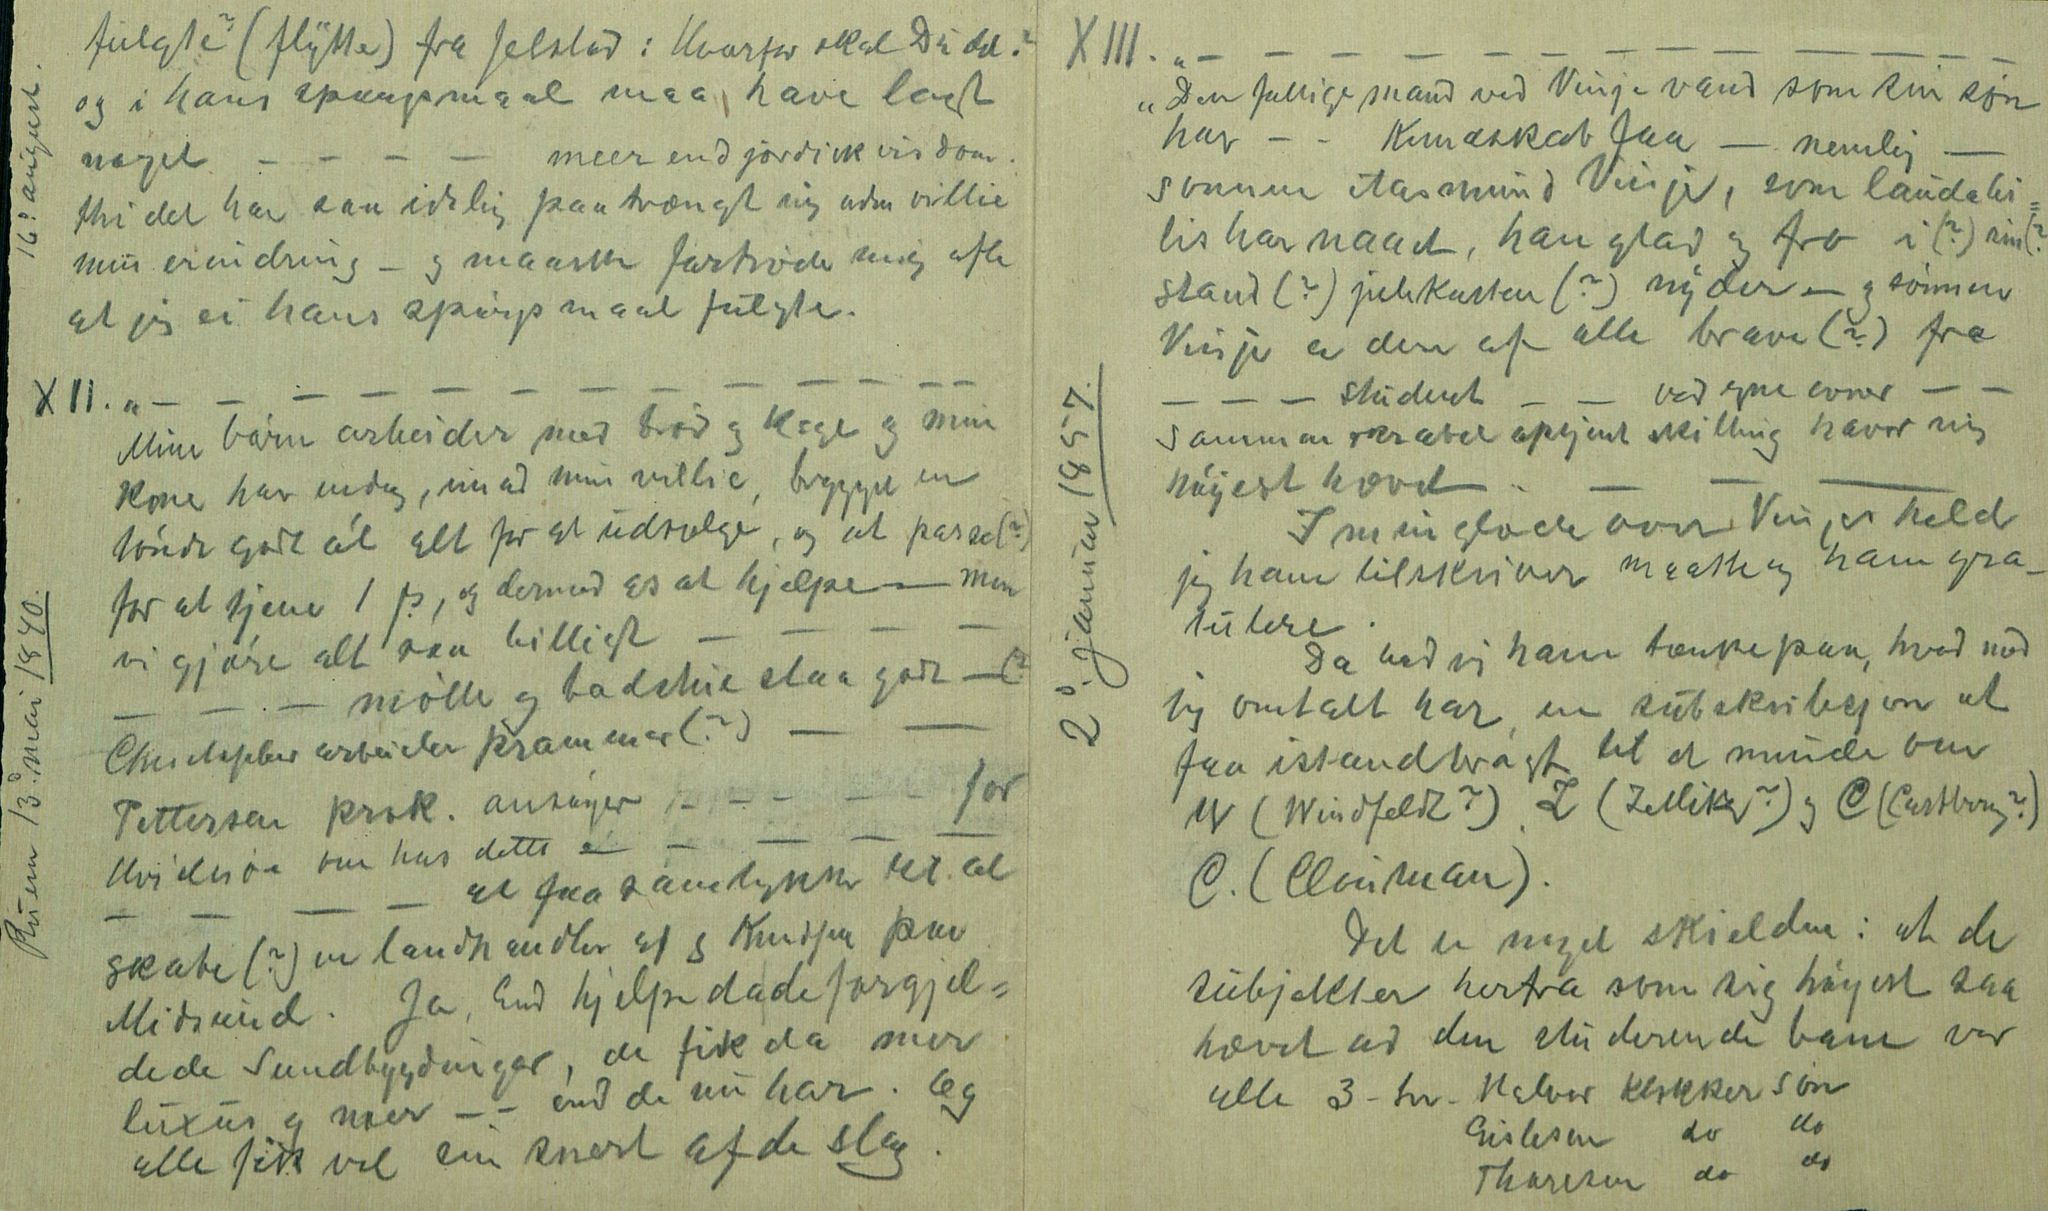 fulgte? (flytte) fra Jelstad: Hvorfor skal Du det?
og i hans spørgsmaal maa have lagt
noget — — — — meer end jordisk visdom.
thi det har saa idelig paatrængt sig uden villie
min erindring — og maaske fortrøde mig ofte
at jeg ei hans spørgsmaal fulgte.
16? august.
XII. „— — — — — — — — — — —
Mine børn arbeider med brød og kage og min
kone har endog, imod min villie, brygget en
tønde godt øl alt for at udsælge, og at passe (?)
for at tjene 1 ß, og dermed os at hjelpe — men
vi gjøre alt saa billigt — — — —
— — — mølle og badstue staa godt — (?
Christopher arbeider krammer (?) — —
Pettersen prok. ansøger — — — — for
Hvidesøe om hos dette — — — — —
— — — — at faa samtykke til at
skabe (?) en landhandler af G Knudsen paa
Midsund. Ja, Gud hjelpe da de forgjel=
dede Sundbygdinger, de fik da mer
luxus og mer — — end de nu har. Og
alle fik vel sin snert af de slag.
Ruen 13? mai 1840.
XIII. „— — — — — — — — — — —
„Den fattige mand ved Vinje vand som sin søn
har — — Kundskab faa — nemlig —
sønnen Aasmund Vinje, som laudabi=
lis har naaet, han glad og fro i (?) sin (?
stand (?) julekasten (?) nyder — og sønnen
Vinje er den af alle brave (?) fra
— — — student — — ved egne evner — —
sammenskrabet optjent skilling hæver sig
høyest hævet — — — —
I min glæde over Vinjes held
jeg ham tilskriver maatte og ham gra-
tulere.
Da bed vi ham tænke paa, hvad nød
jeg omtalt har en subskribsjon at
faa istandbragt til et minde om
W (Windfeldt?) Z (Zetlitz?) og C (Castberg?)
C. (Clouman).
Det er noget skielden: at de
subjekter herfra som sig høyest saa
hævet ad den studerende bane var
alle 3 - Halvor Klokker søn
Gislesen do do
Thoresen do do
2? januar 1857.